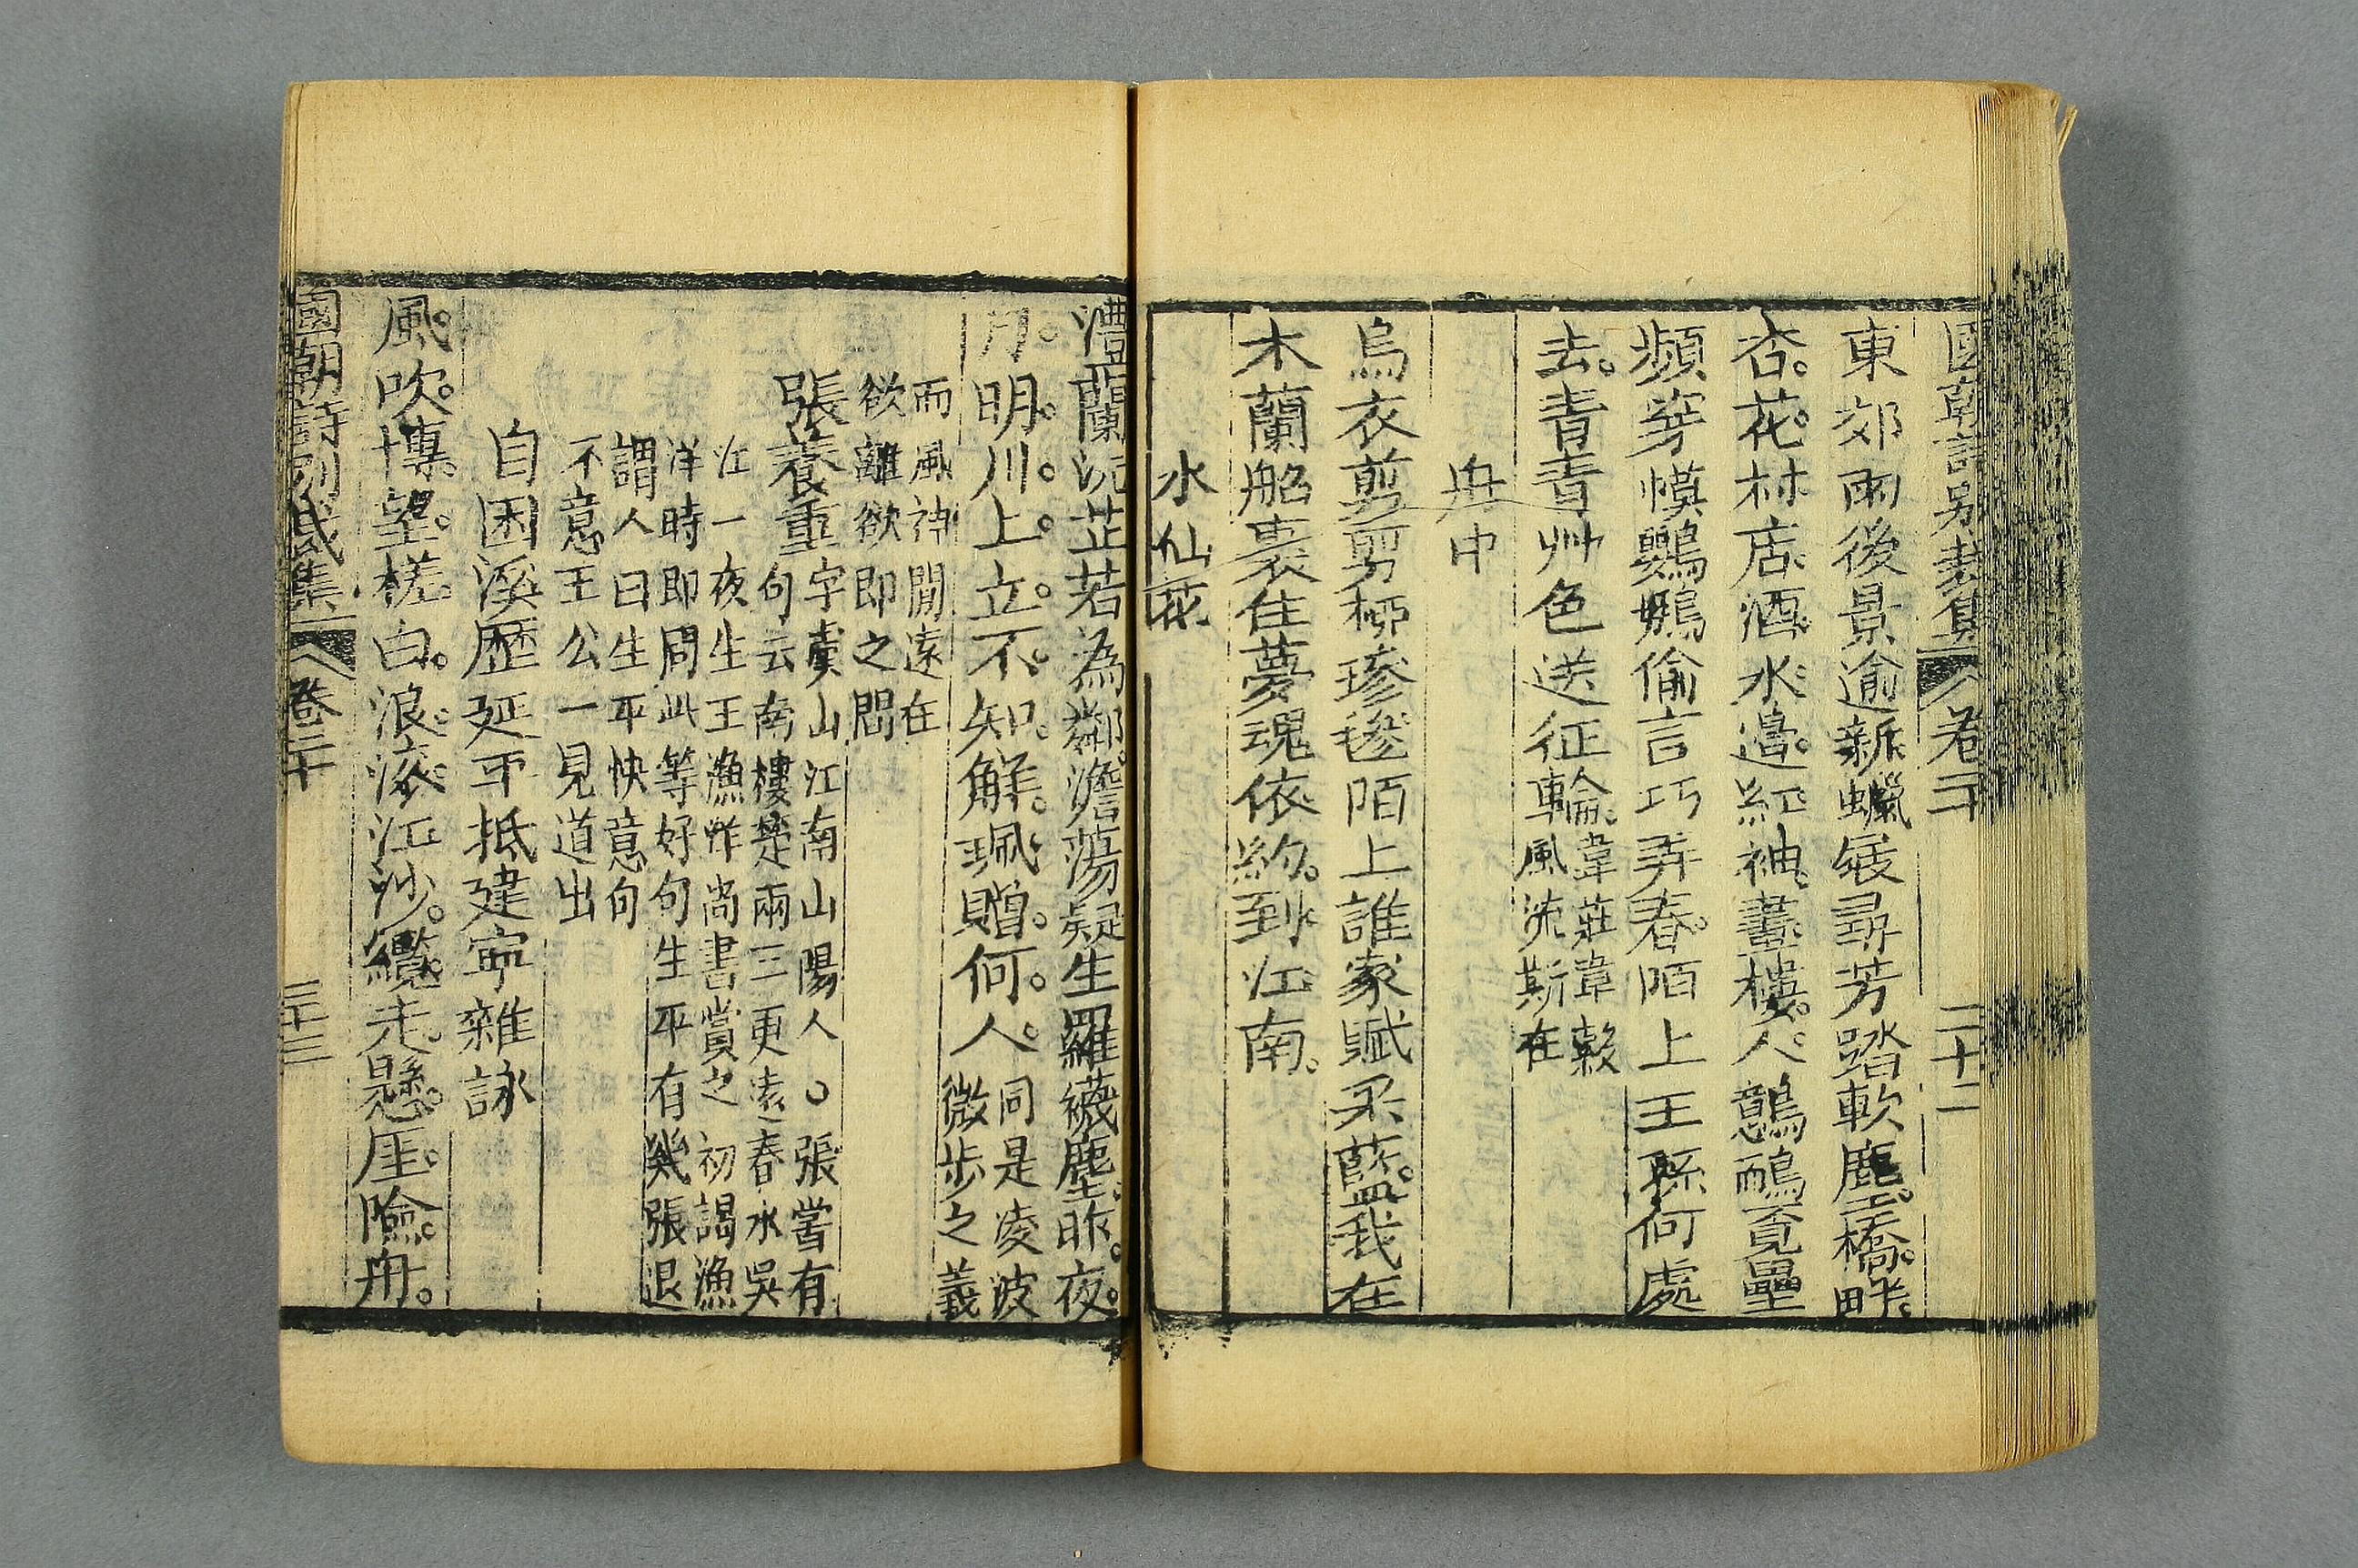 國朝詩別裁集 卷二十 二十二
東郊雨後景逾新蠟屐尋芳踏軟塵橋畔
杏花村店酒水邊紅袖畫樓人鷾鴯覓壘
頻穿幙鸚鵡偷言巧弄春陌上王孫何處
去青青艸色送征輪
韋莊韋縠
風流斯在
舟中
烏衣剪剪柳毿毿陌上誰家賦采藍我在
木蘭船裏住夢魂依約到江南
水仙花
澧蘭沅芷若為鄰澹蕩疑生羅襪塵昨夜
月明川上立不知解珮贈何人
同是凌波
微步之義
而風神閒遠在
欲離欲即之間
張養重
字虞山江南山陽人○張嘗有
句云南樓楚兩三更遠春水吳
江一夜生王漁洋尚書賞之初謁漁
洋時即問此等好句生平有幾張退
謂人曰生平快意句
不意王公一見道出
自困溪歷延平抵建寧雜詠
風吹博望槎白浪滾江沙纜走懸厓險舟
國朝詩別裁集 卷二十 二十三